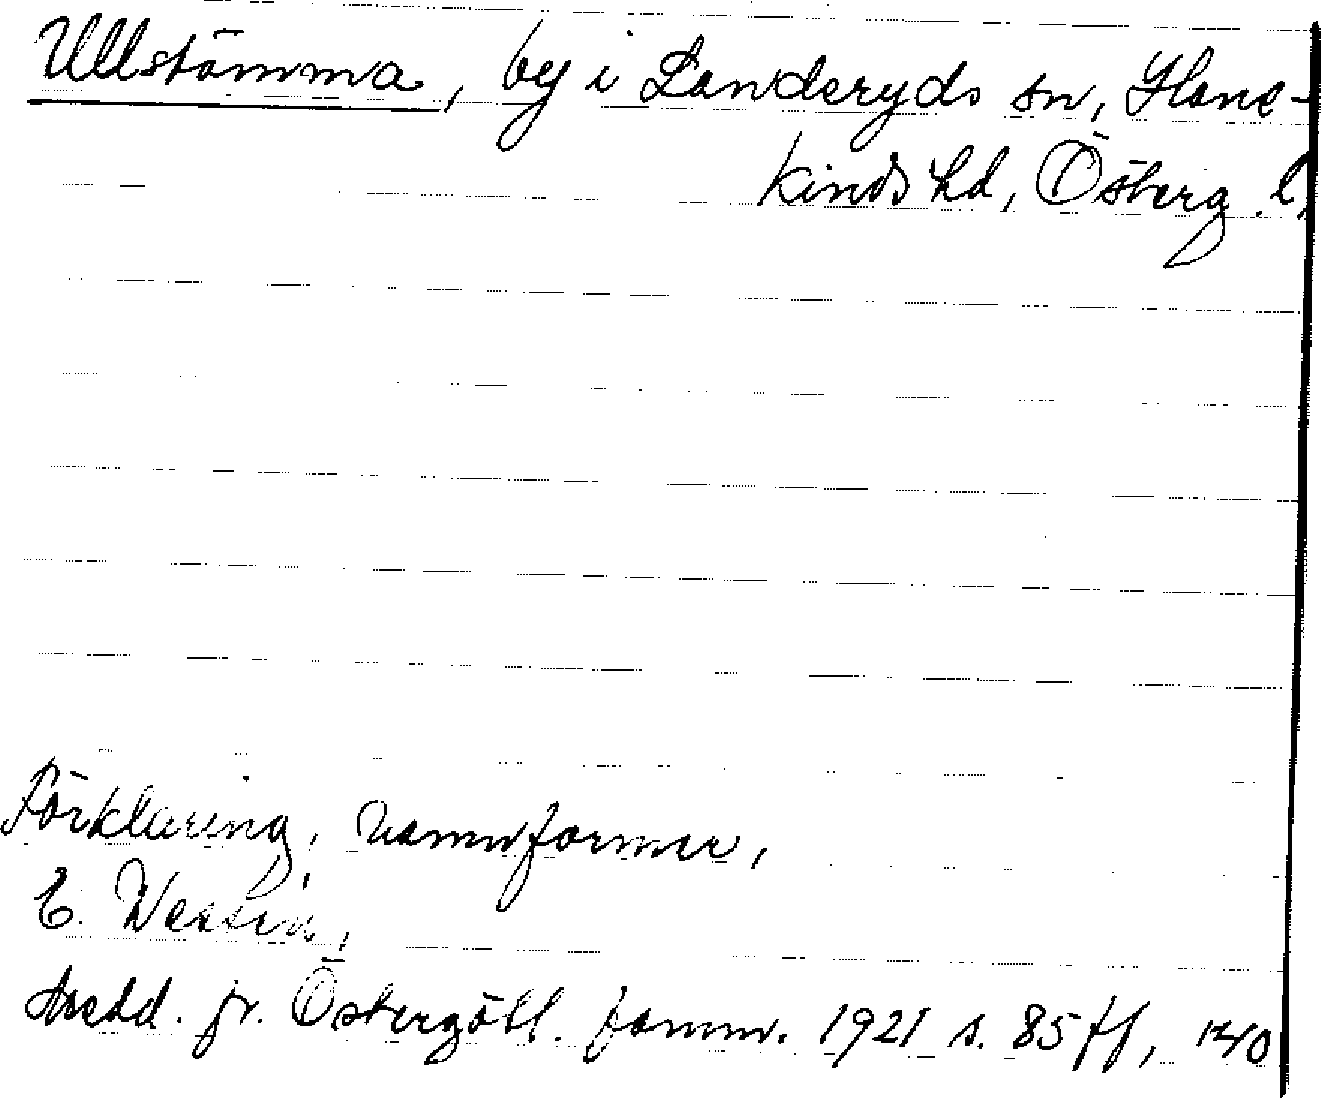 Ullstämma, by i Landeryds sn, Hane-
kinds hd, Österg. l,
Förklaring, namnformer,
E. Wessén,
Medd. fr. Östergötl. fornm. 1921 s. 85 ff, 140